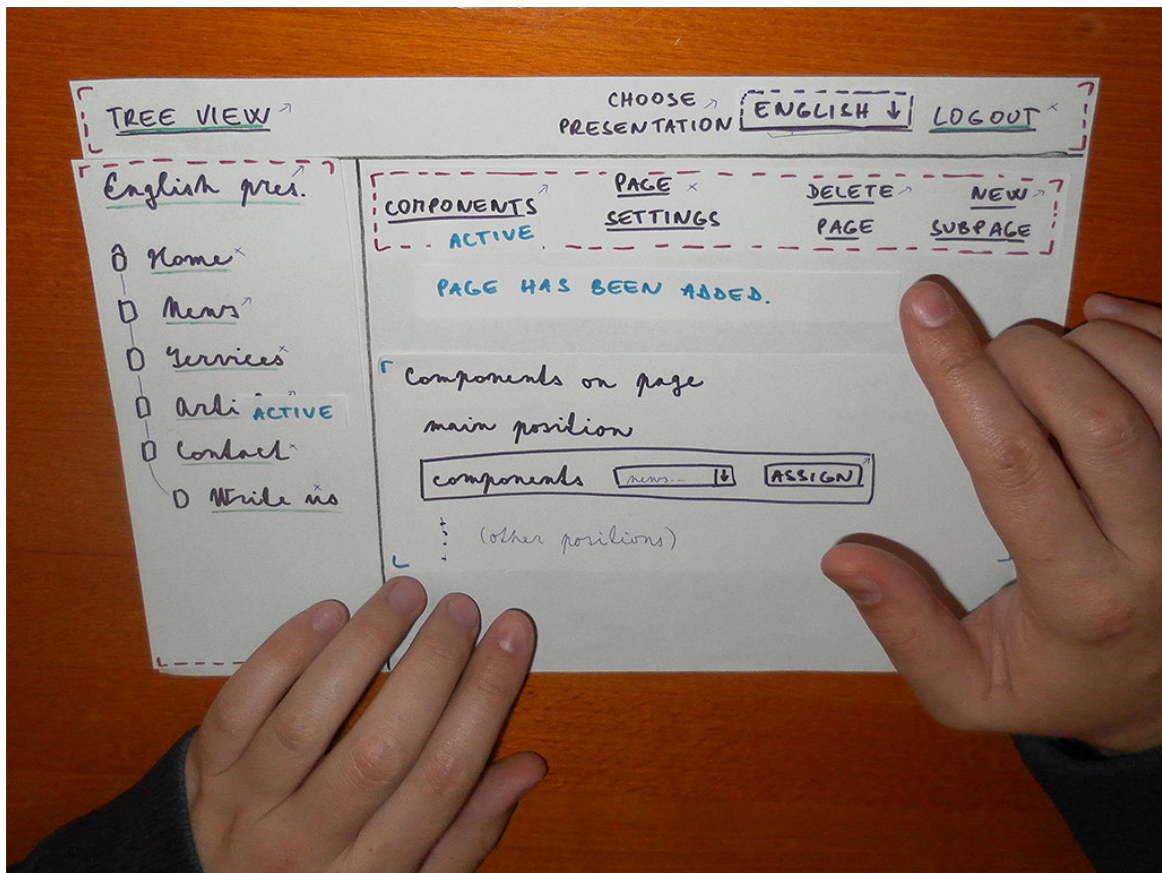 TREE VIEW
CHOOSE
PRESENTATION
ENGLISH
LOGOUT
English pres.
Home
News
Services
arti
ACTIVE
Contact
Write us
COMPONENTS
ACTIVE
PAGE
SETTINGS
DELETE
PAGE
NEW
SUBPAGE
PAGE HAS BEEN ADDED.
Components on page
main position
components news... ASSIGN
(other positions)